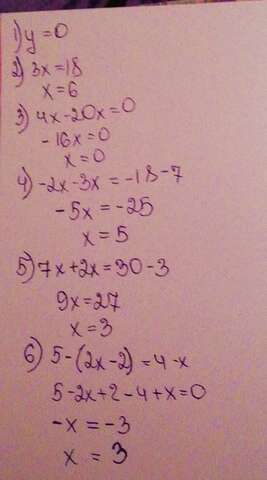 1) y=0
2) 3x=18
x=6
3) 4x-20x=0
-16x=0
x=0
4) -2x-3x=-18-7
-5x=-25
x=5
5) 7x+2x=30-3
9x=27
x=3
6) 5-(2x-2)=4-x
5-2x+2-4+x=0
-x=-3
x=3